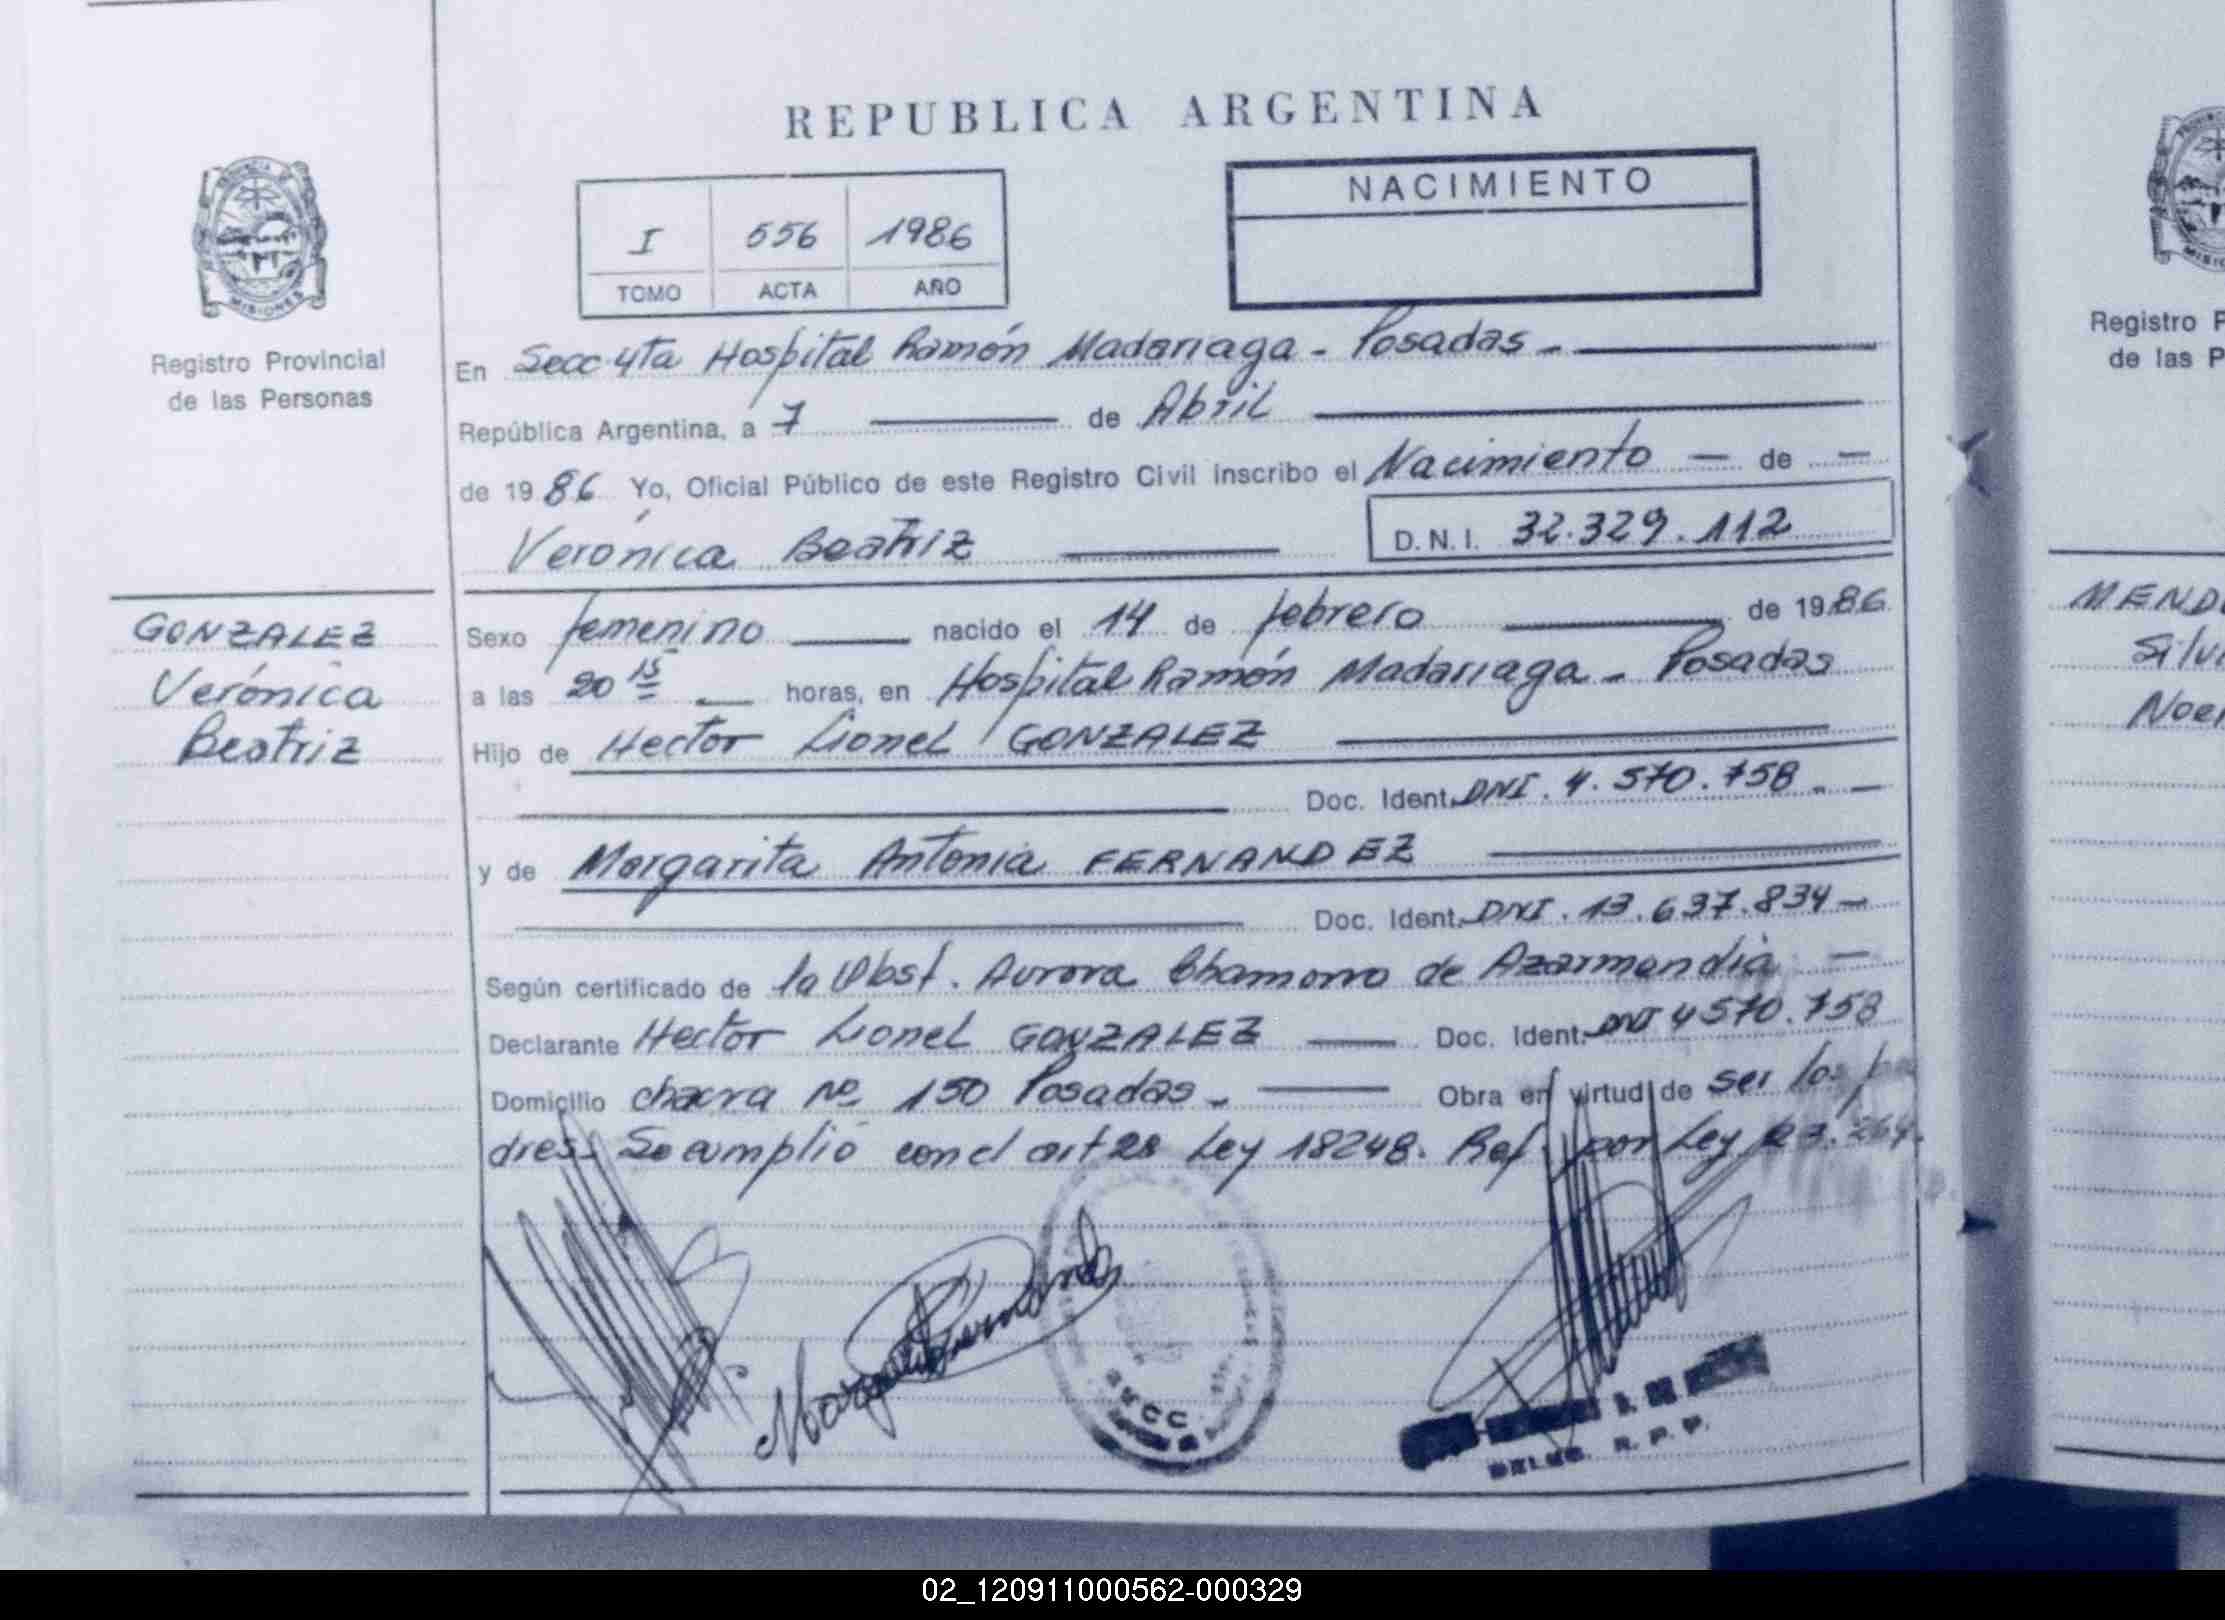 REPUBLICA ARGENTINA
PROVINCIA DE
MISIONES
Registro Provincial
de las Personas
I 556 1986
TOMO ACTA AÑO
NACIMIENTO
En Secc 4ta Hospital Ramón Madariaga - Posadas -
República Argentina, a 7 de Abril
de 1986 Yo, Oficial Público de este Registro Civil inscribo el Nacimiento — de —
Verónica Beatriz D.N.I. 32.329.112
GONZALEZ
Verónica
Beatriz
Sexo femenino nacido el 14 de febrero de 1986
a las 20 15 horas, en Hospital Ramón Madariaga - Posadas
Hijo de Hector Lionel GONZALEZ
Doc. Ident. DNI. 4.570.758 -
y de Margarita Antonia FERNANDEZ
Doc. Ident. DNI. 13.637.834 -
Según certificado de la Obst. Aurora Chamorro de Azarmendia —
Declarante Hector Lionel GONZALEZ Doc. Ident. DNI 4570.758
Domicilio chacra Nº 150 Posadas - Obra en virtud de ser los pa
dres Se cumplió con el art 28 Ley 18248. Ref. por Ley 23.264.
R. P. P.
Registro
de las P
MEND
Silv
Noe
02_120911000562-000329